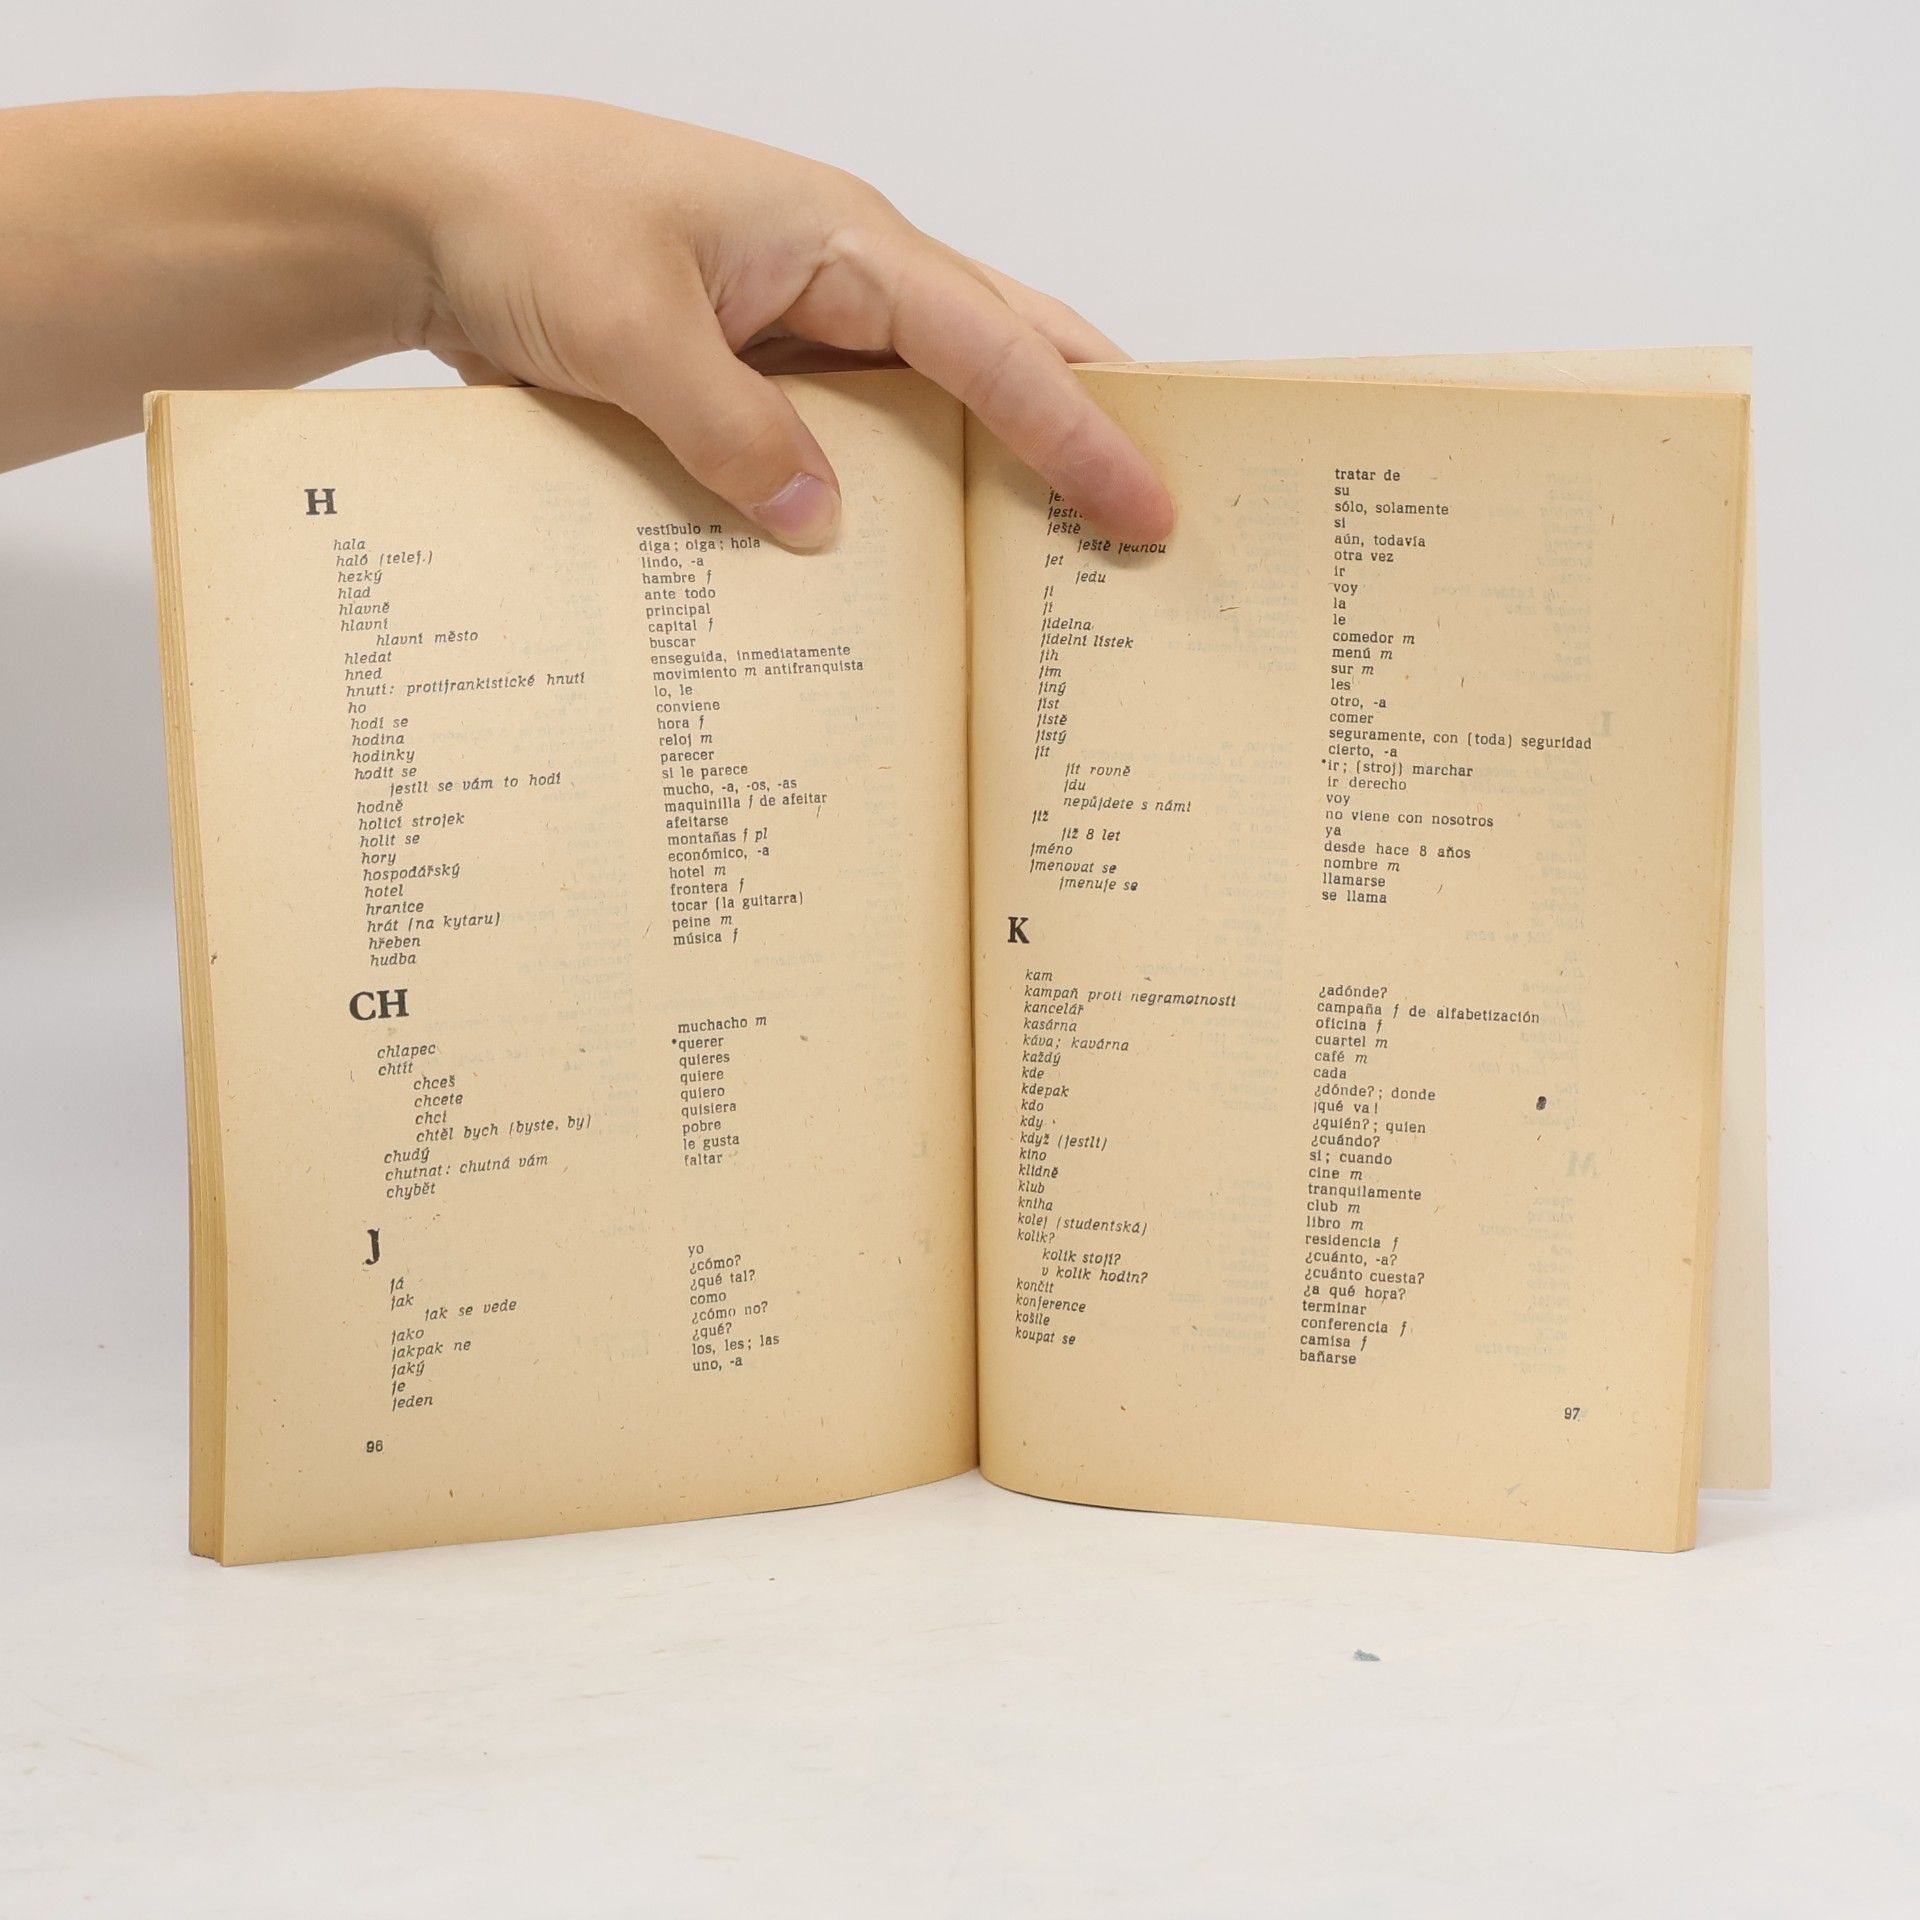 H
hala vestíbulo m
haló (telef.) diga; oiga; hola
hezký lindo, -a
hlad hambre f
hlavně ante todo
hlavní principal
hlavní město capital f
hledat buscar
hned enseguida, inmediatamente
hnutí: protifrankistické hnutí movimiento m antifranquista
ho lo, le
hodí se conviene
hodina hora f
hodinky reloj m
hodit se parecer
jestli se vám to hodí si le parece
hodně mucho, -a, -os, -as
holicí strojek maquinilla f de afeitar
holit se afeitarse
hory montañas f pl
hospodářský económico, -a
hotel hotel m
hranice frontera f
hrát (na kytaru) tocar (la guitarra)
hřeben peine m
hudba música f
CH
chlapec muchacho m
chtít *querer
chceš quieres
chcete quiere
chci quiero
chtěl bych (byste, by) quisiera
chudý pobre
chutnat: chutná vám le gusta
chybět faltar
J
já yo
jak ¿cómo?
jak se vede ¿qué tal?
jako como
jakpak ne ¿cómo no?
jaký ¿qué?
je los, les; las
jeden uno, -a
96
tratar de
su
sólo, solamente
si
ještě aún, todavía
ještě jednou otra vez
jet ir
jedu voy
ji la
jí le
jídelna comedor m
jídelní lístek menú m
jih sur m
jim les
jiný otro, -a
jíst comer
jistě seguramente, con (toda) seguridad
jistý cierto, -a
jít *ir; (stroj) marchar
jít rovně ir derecho
jdu voy
nepůjdete s námi no viene con nosotros
již ya
již 8 let desde hace 8 años
jméno nombre m
jmenovat se llamarse
jmenuje se se llama
K
kam ¿adónde?
kampaň proti negramotnosti campaña f de alfabetización
kancelář oficina f
kasárna cuartel m
káva; kavárna café m
každý cada
kde ¿dónde?; donde
kdepak ¡qué va!
kdo ¿quién?; quien
kdy ¿cuándo?
když (jestli) si; cuando
kino cine m
klidně tranquilamente
klub club m
kniha libro m
kolej (studentská) residencia f
kolik? ¿cuánto, -a?
kolik stojí? ¿cuánto cuesta?
v kolik hodin? ¿a qué hora?
končit terminar
konference conferencia f
košile camisa f
koupat se bañarse
97